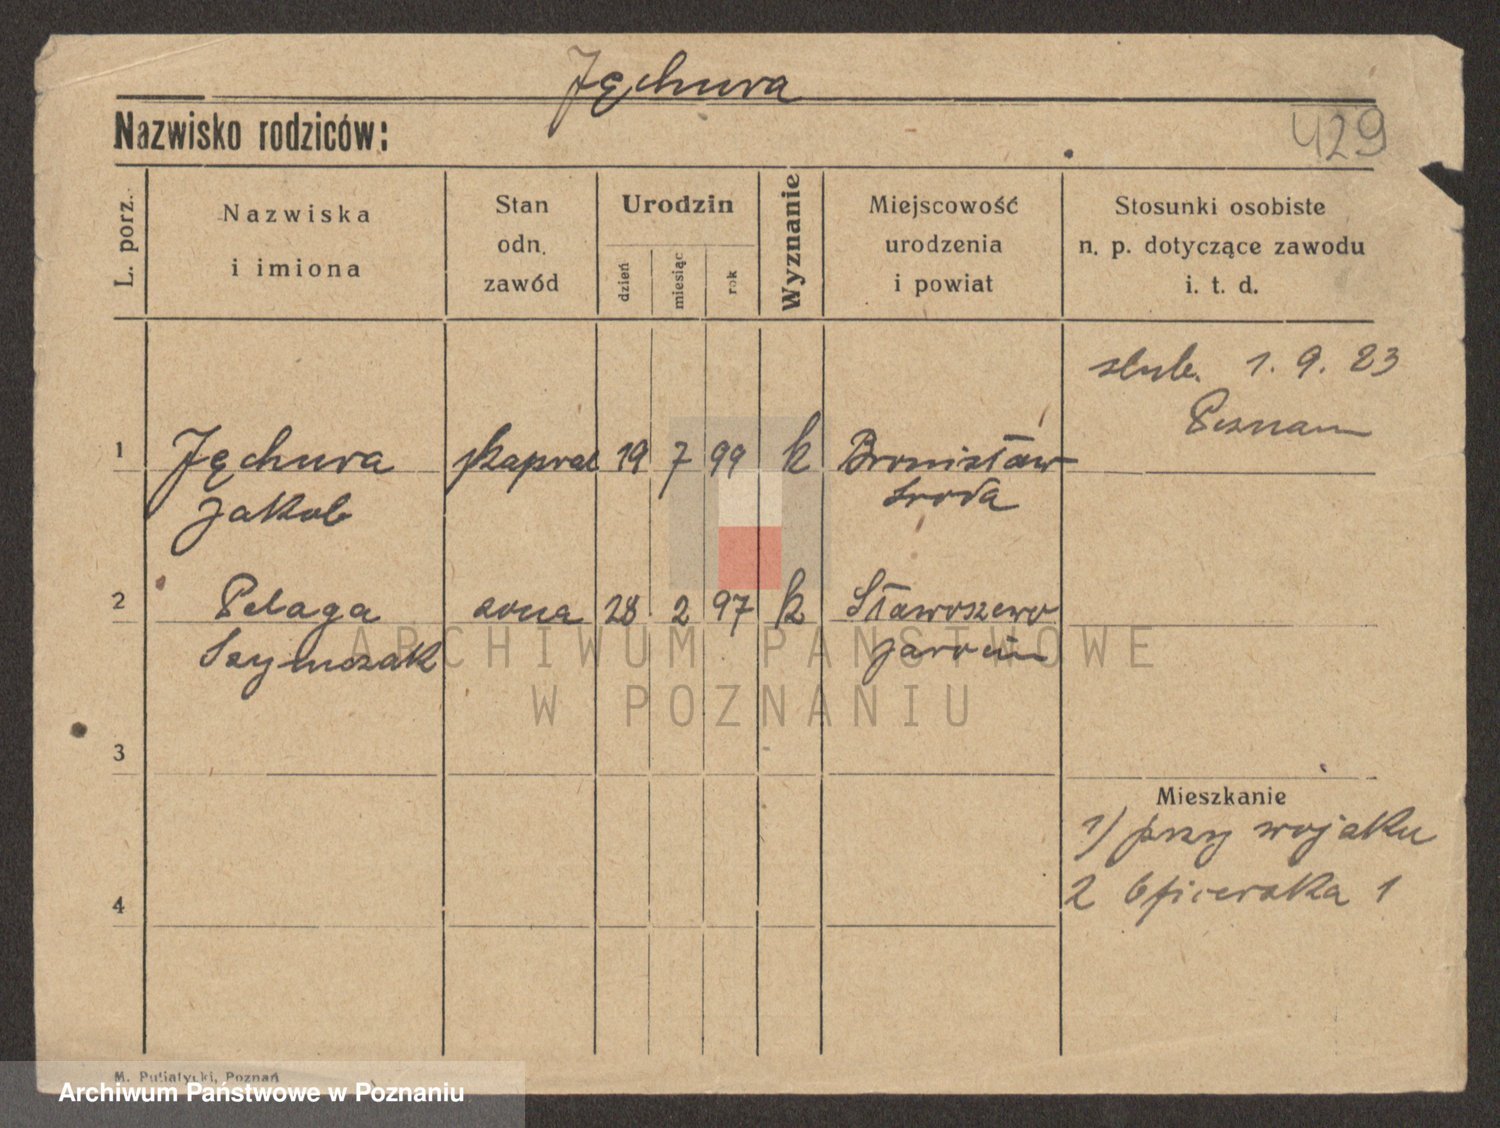 Jęchura
Nazwisko rodziców:
429
L. porz.
Nazwiska
i imiona
Stan
odn.
zawód
Urodzin
dzień
miesiąc
rok
Wyznanie
Miejscowość
urodzenia
i powiat
Stosunki osobiste
n. p. dotyczące zawodu
i. t. d.
slub. 1. 9. 23
Poznań
1 Jęchura kapral 19 7 99 k Bronisław
Jakob Sroda
2 Pelaga zona 28 2 97 k Stawoszewo
Szymczak Jarocin
3
Mieszkanie
1/ przy wojsku
4
2 Oficerska 1
ARCHIWUM PAŃSTWOWE
W POZNANIU
M. Putiatycki, Poznań
Archiwum Państwowe w Poznaniu